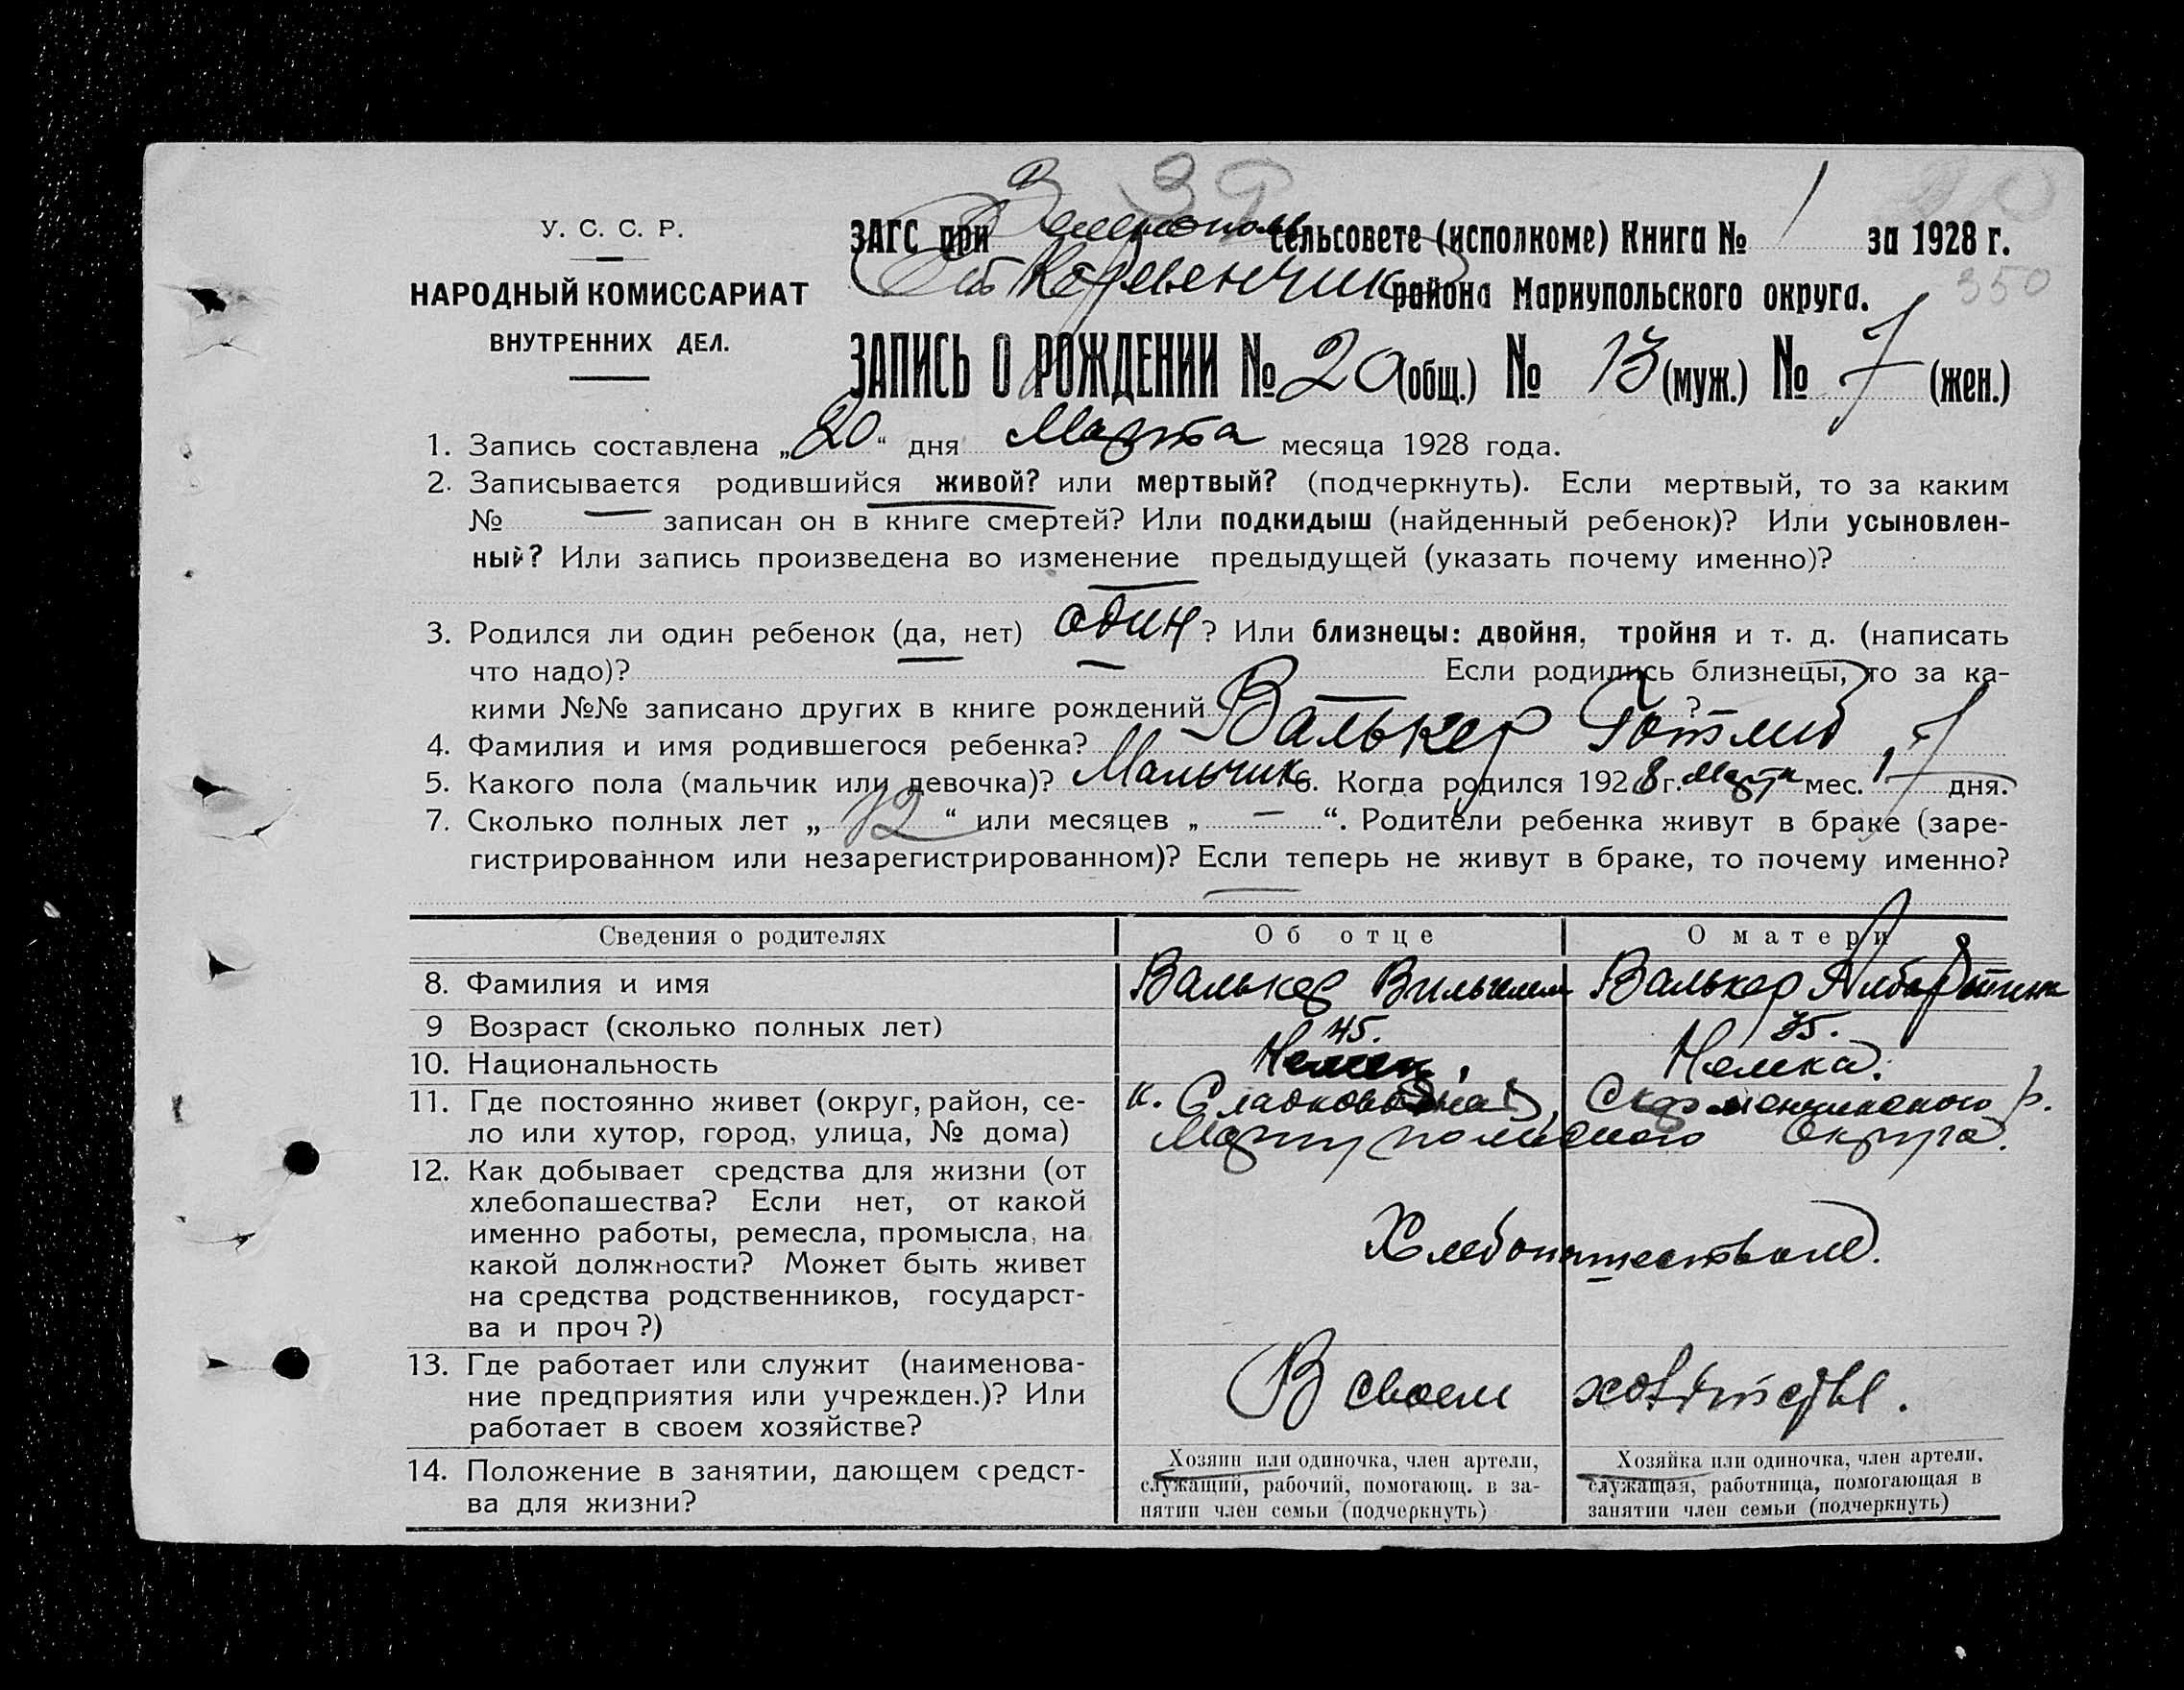 39
У. С. С. Р.
НАРОДНЫЙ КОМИССАРИАТ
ВНУТРЕННИХ ДЕЛ.
ЗАГС при сельсовете (исполкоме) Книга № 1 за 1928 г.
района Мариупольского округа.
350
ЗАПИСЬ О РОЖДЕНИИ № 20 (общ.) № 13 (муж.) № 7 (жен.)
1. Запись составлена „20“ дня Марта месяца 1928 года.
2. Записывается родившийся живой? или мертвый? (подчеркнуть). Если мертвый, то за каким
№ — записан он в книге смертей? Или подкидыш (найденный ребенок)? Или усыновлен-
ный? Или запись произведена во изменение предыдущей (указать почему именно)?
—
3. Родился ли один ребенок (да, нет) один? Или близнецы: двойня, тройня и т. д. (написать
что надо)? — Если родились близнецы, то за ка-
кими №№ записано других в книге рождений — ?
4. Фамилия и имя родившегося ребенка? Валькер Готлиб
5. Какого пола (мальчик или девочка)? Мальчик 6. Когда родился 1928 г. Марта мес. 17 дня.
7. Сколько полных лет „12“ или месяцев „—“. Родители ребенка живут в браке (заре-
гистрированном или незарегистрированном)? Если теперь не живут в браке, то почему именно?
—
Сведения о родителях Об отце О матери
8. Фамилия и имя Валькер Вильгельм Валькер
9 Возраст (сколько полных лет) 45. 35.
10. Национальность Немец, Немка.
11. Где постоянно живет (округ, район, се- к. Сладководная,
ло или хутор, город, улица, № дома) Мариупольского Округа.
12. Как добывает средства для жизни (от
хлебопашества? Если нет, от какой
именно работы, ремесла, промысла, на
какой должности? Может быть живет Хлебопашеством.
на средства родственников, государст-
ва и проч?)
13. Где работает или служит (наименова-
ние предприятия или учрежден.)? Или В своем хозяйстве.
работает в своем хозяйстве?
14. Положение в занятии, дающем средст-
ва для жизни?
Хозяин или одиночка, член артели,
служащий, рабочий, помогающ. в за-
нятии член семьи (подчеркнуть)
Хозяйка или одиночка, член артели.
служащая, работница, помогающая в
занятии член семьи (подчеркнуть)